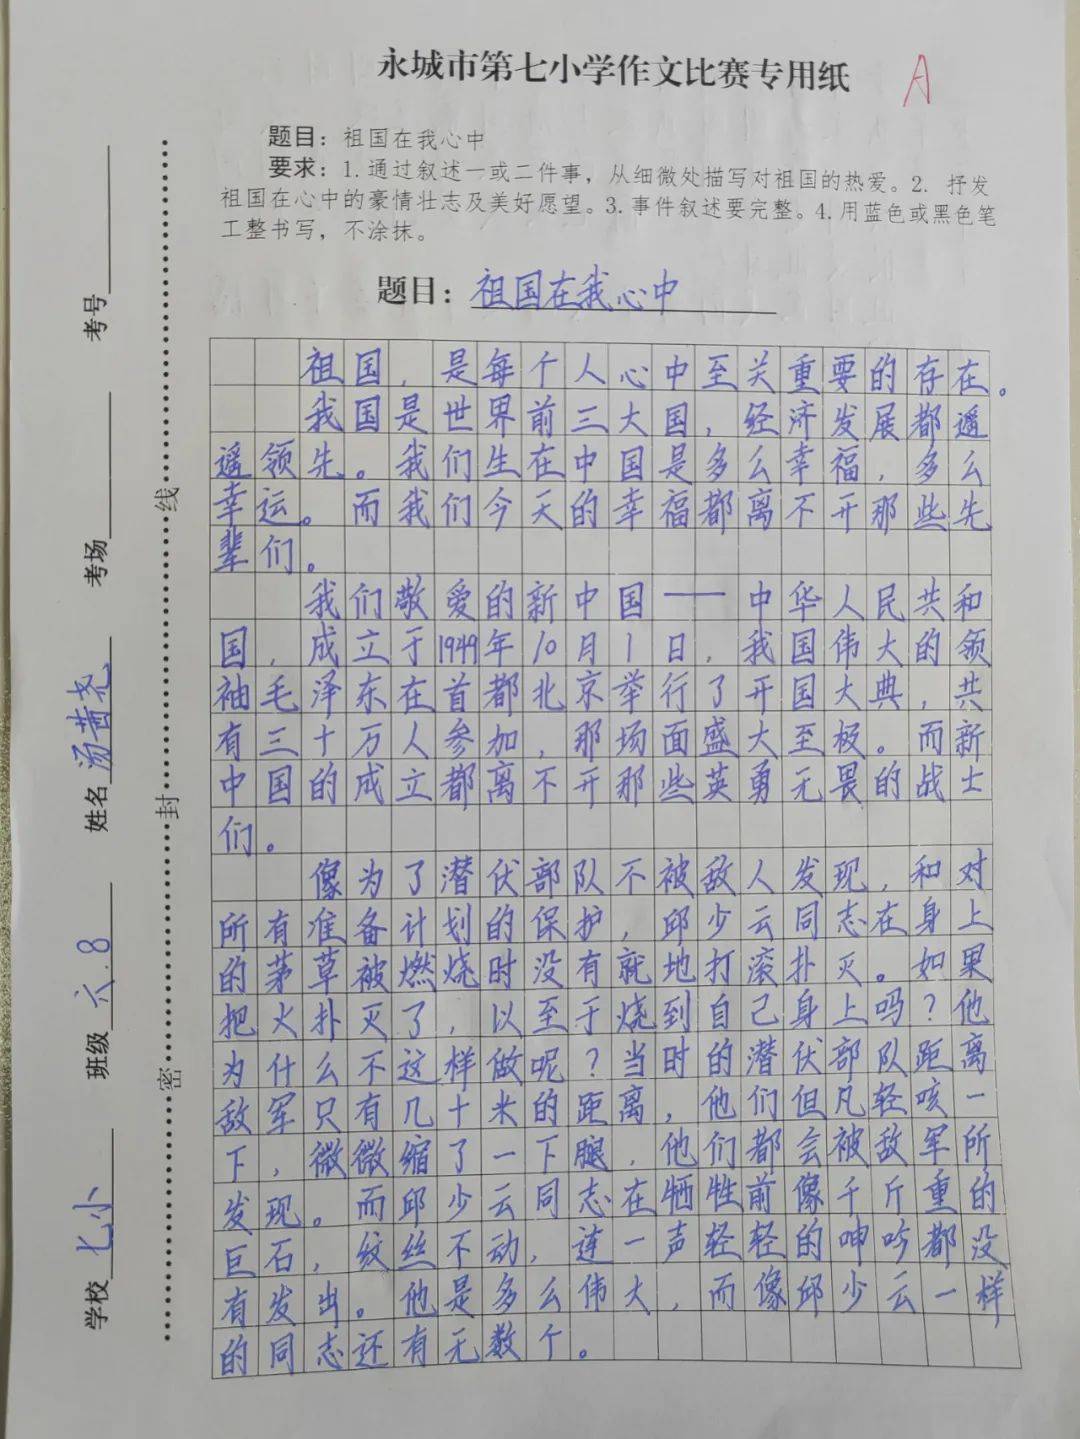 永城市第七小学作文比赛专用纸
A
题目：祖国在我心中
要求：1.通过叙述一或二件事，从细微处描写对祖国的热爱。2. 抒发
祖国在心中的豪情壮志及美好愿望。3.事件叙述要完整。4.用蓝色或黑色笔
工整书写，不涂抹。
题目：祖国在我心中
祖国，是每个人心中至关重要的存在。
我国是世界前三大国，经济发展都遥
遥领先。我们生在中国是多么幸福，多么
幸运。而我们今天的幸福都离不开那些先
辈们。
我们敬爱的新中国——中华人民共和
国，成立于1949年10月1日，我国伟大的领
袖毛泽东在首都北京举行了开国大典，共
有三十万人参加，那场面盛大至极。而新
中国的成立都离不开那些英勇无畏的战士
们。
像为了潜伏部队不被敌人发现，和对
所有准备计划的保护，邱少云同志在身上
的茅草被燃烧时没有就地打滚扑灭。如果
把火扑灭了，以至于烧到自己身上吗？他
为什么不这样做呢？当时的潜伏部队距离
敌军只有几十米的距离，他们但凡轻咳一
下，微微缩了一下腿，他们都会被敌军所
发现。而邱少云同志在牺牲前像千斤重的
巨石，纹丝不动，连一声轻轻的呻吟都没
有发出。他是多么伟大，而像邱少云一样
的同志还有无数个。
学校 七小 班级 六.8 姓名 汤茜尧 考场 考号
密 封 线